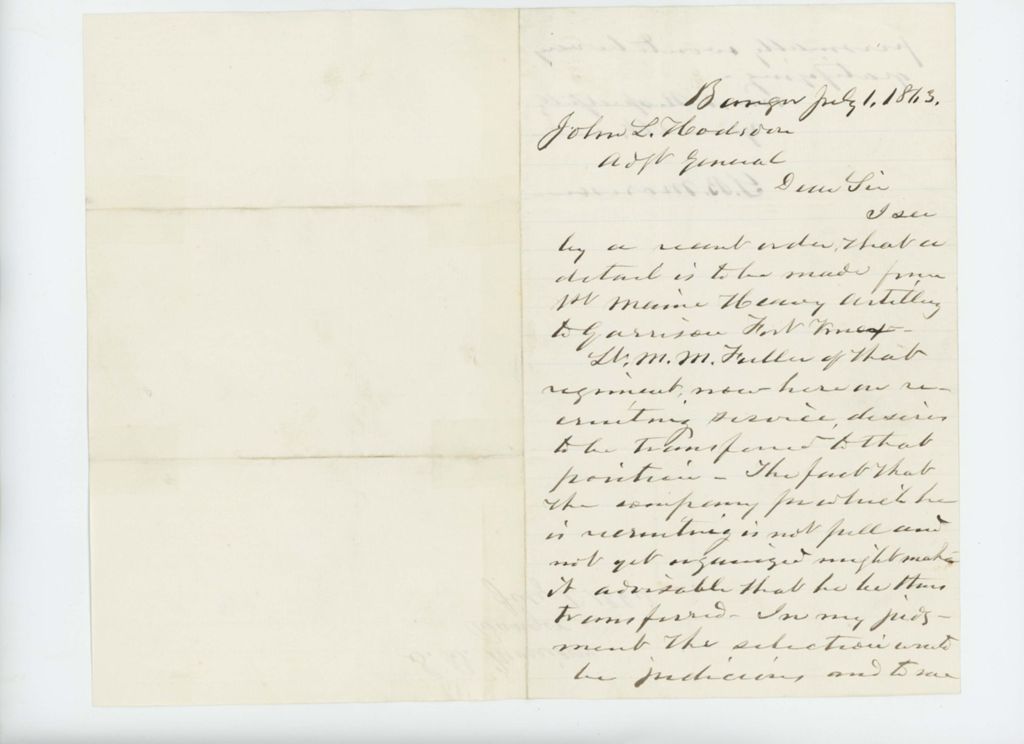 Bangor July 1, 1863.
John L. Hodsdon
Adjt General
Dear Sir
I see
by a recent order, that a
detail is to be made from
1st Maine Heavy Artillery
to Garrison Fort Knox -
Lt. M. M. Fuller of that
regiment, now here on re-
cruiting service, desires
to be transferred to that
position - The fact that
the company for which he
is recruiting is not full and
not yet organized might make
it advisable that he be thus
transferred - In my judg-
ment the selection would
be judicious and to me